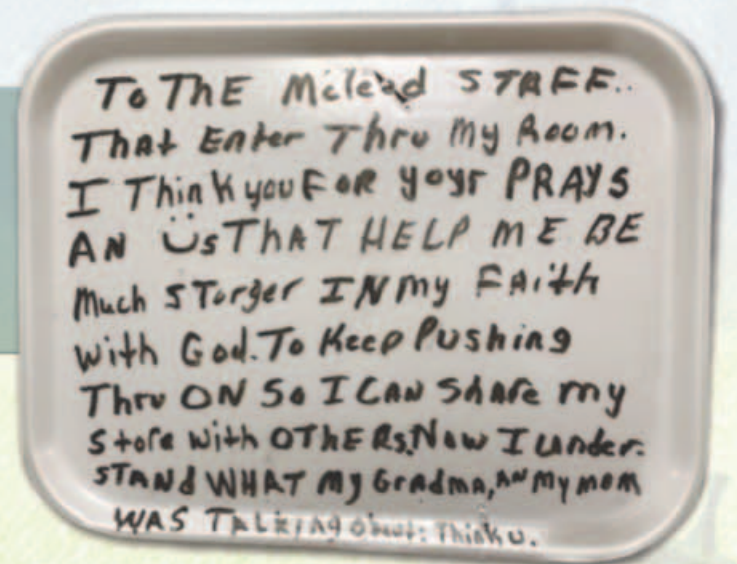 To ThE Mcleod STAFF..
ThAt Enter Thru My Room.
I Think you FOR yoyr PRAYS
AN ÜsThAT HELP ME BE
Much STorger IN my FAith
with God. To Keep Pushing
Thru ON So I CAN ShAre my
Store with OThERs. Now I under.
STANd WHAT my Gradma, AN my mom
WAS TALKING about: Think u.